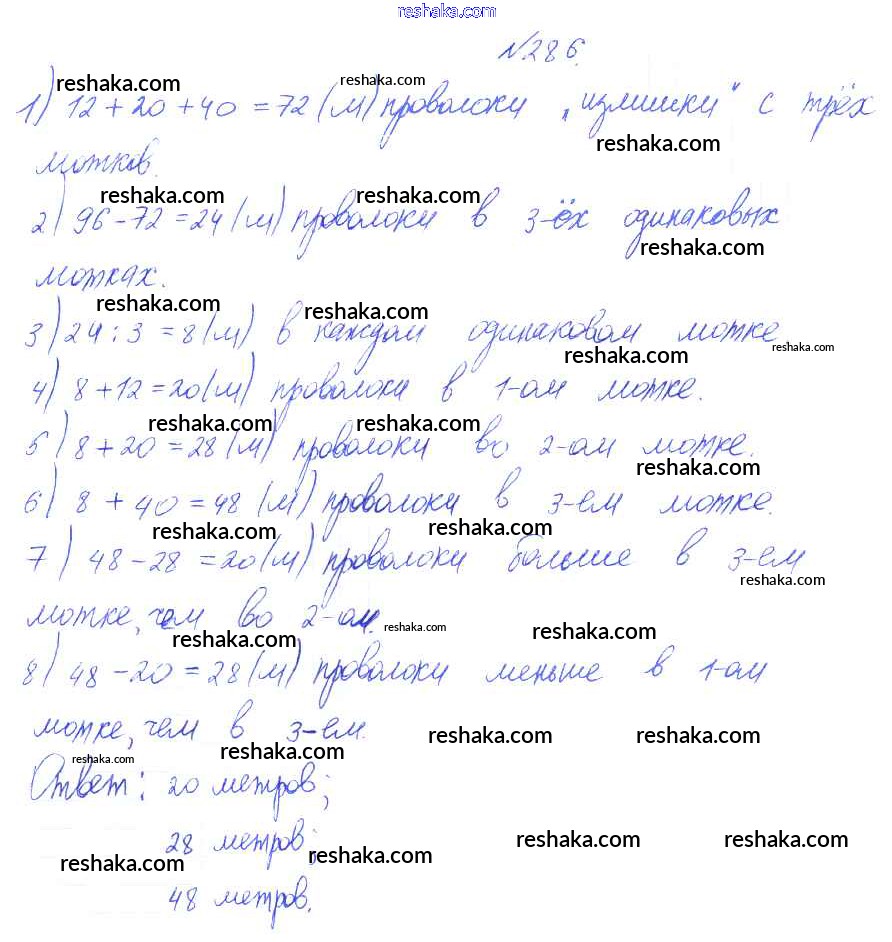 reshaka.com
№286.
reshaka.com reshaka.com
1) 12 + 20 + 40 = 72 (м) проволоки „излишки" с трёх
reshaka.com
мотков.
reshaka.com reshaka.com
2) 96 - 72 = 24 (м) проволоки в 3-ёх одинаковых
reshaka.com
мотках.
reshaka.com reshaka.com
3) 24 : 3 = 8 (м) в каждом одинаковом мотке
reshaka.com reshaka.com
4) 8 + 12 = 20 (м) проволоки в 1-ом мотке.
reshaka.com reshaka.com
5) 8 + 20 = 28 (м) проволоки во 2-ом мотке.
reshaka.com
6) 8 + 40 = 48 (м) проволоки в 3-ем мотке.
reshaka.com reshaka.com
7) 48 - 28 = 20 (м) проволоки больше в 3-ем
reshaka.com
мотке, чем во 2-ом.
reshaka.com reshaka.com reshaka.com
8) 48 - 20 = 28 (м) проволоки меньше в 1-ом
мотке, чем в 3-ем.
reshaka.com reshaka.com reshaka.com reshaka.com
Ответ: 20 метров;
28 метров;
reshaka.com reshaka.com reshaka.com reshaka.com
48 метров.